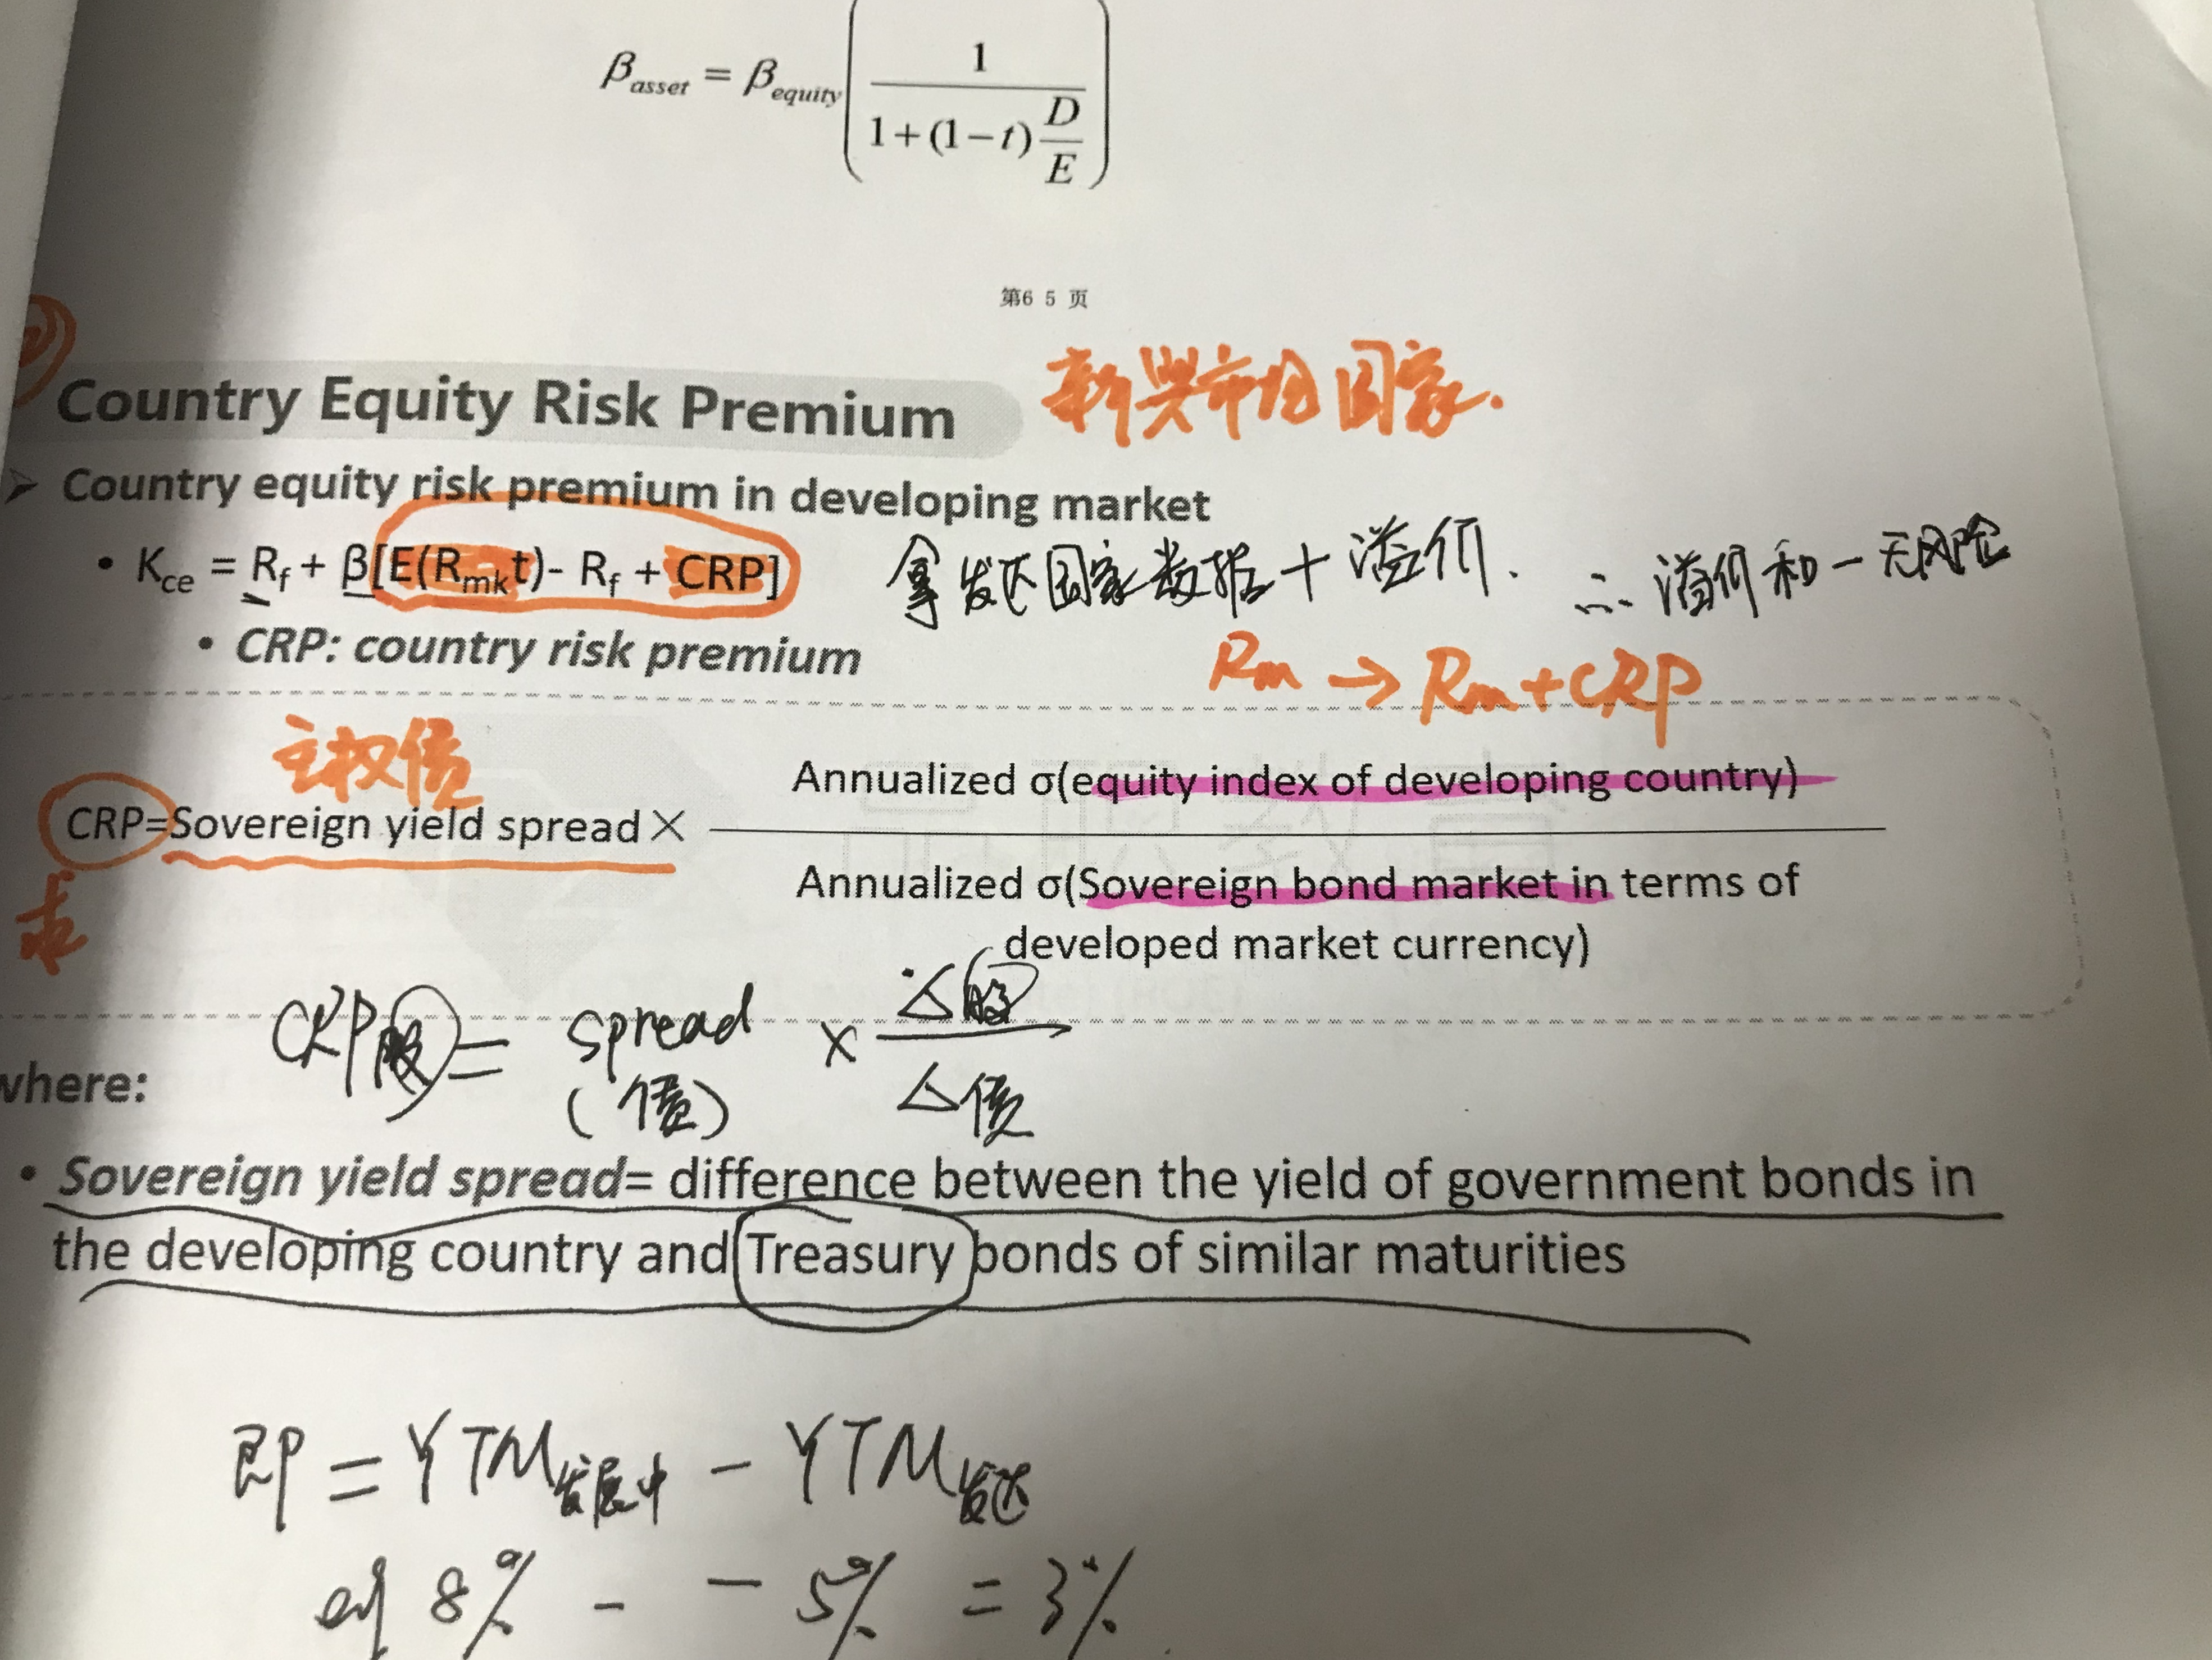 β_asset = β_equity ( 1 / ( 1+(1−t) D/E ) )
第6 5 页
Country Equity Risk Premium 新兴市场国家.
➤ Country equity risk premium in developing market
• K_ce = R_f + β[E(R_mkt)- R_f + CRP] 拿发达国家数据+溢价. ∴溢价和一无风险
• CRP: country risk premium
Rm → Rm+CRP
主权债
CRP=Sovereign yield spread × Annualized σ(equity index of developing country)
Annualized σ(Sovereign bond market in terms of
developed market currency)
求
CRP股 = spread (债) × △股 / △债
where:
• Sovereign yield spread= difference between the yield of government bonds in
the developing country and Treasury bonds of similar maturities
即 = YTM发展中 − YTM发达
eg 8% - − 5% = 3%